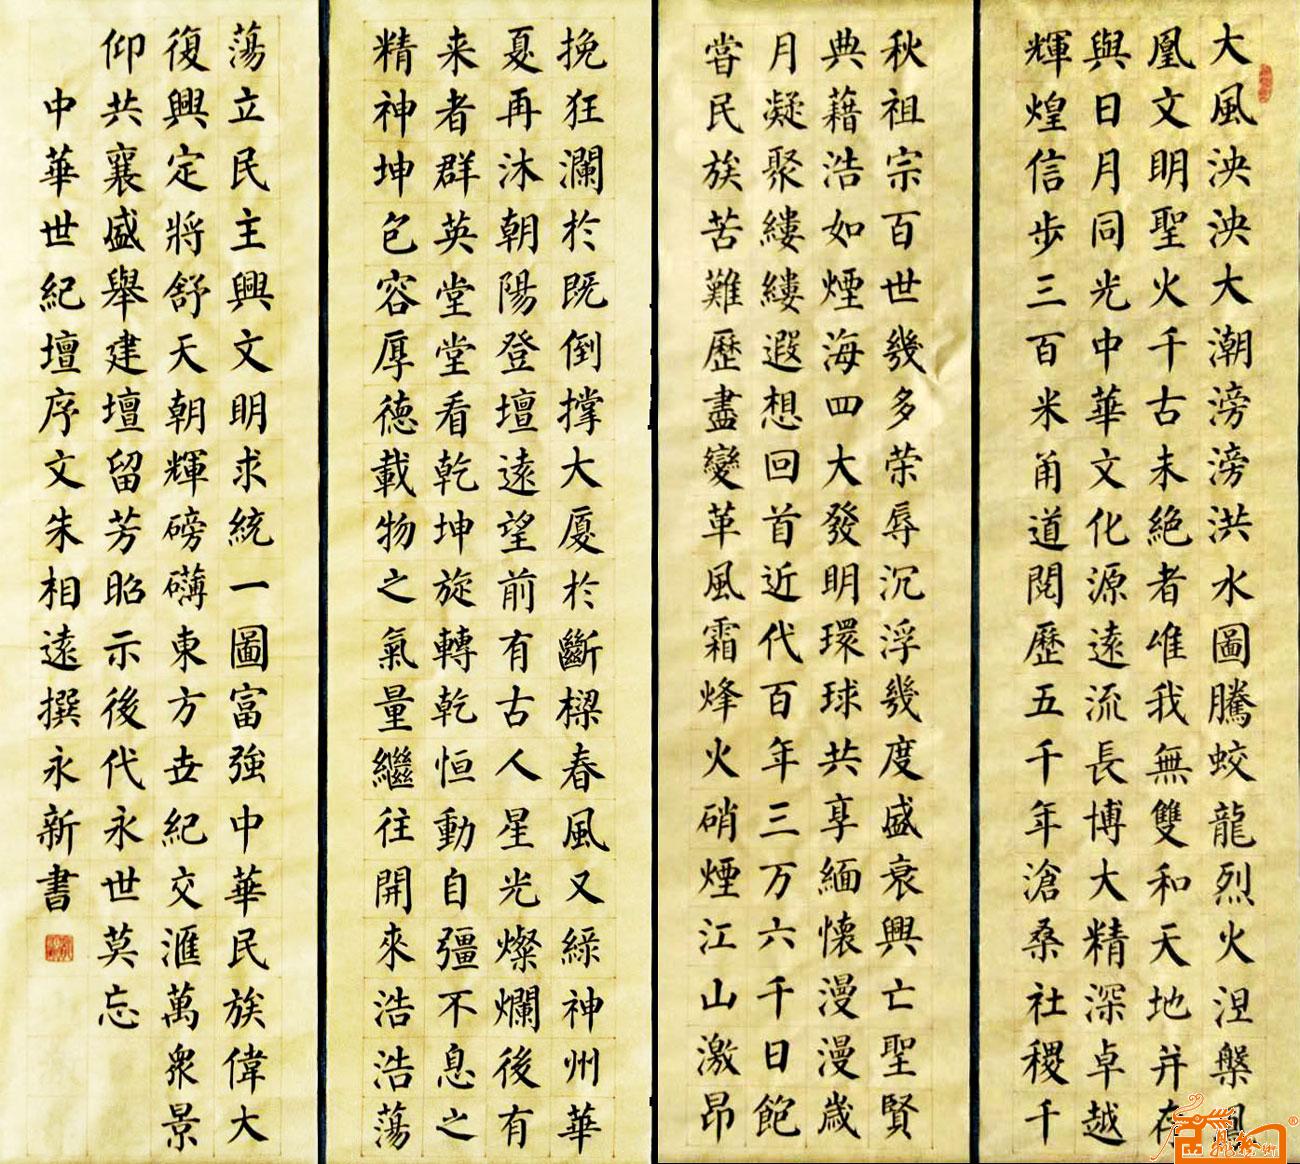 大風泱泱大潮滂滂洪水圖騰蛟龍烈火涅槃鳳
凰文明聖火千古未絕者唯我無雙和天地并存
與日月同光中華文化源遠流長博大精深卓越
輝煌信步三百米甬道閱歷五千年滄桑社稷千
秋祖宗百世幾多荣辱沉浮幾度盛衰興亡聖賢
典藉浩如煙海四大發明環球共享緬懷漫漫歲
月凝聚縷縷遐想回首近代百年三万六千日飽
嘗民族苦難歷盡變革風霜烽火硝煙江山激昂
挽狂瀾於既倒撐大廈於斷樑春風又綠神州華
夏再沐朝陽登壇遠望前有古人星光燦爛後有
来者群英堂堂看乾坤旋轉乾恒動自彊不息之
精神坤包容厚德載物之氣量繼往開來浩浩蕩
蕩立民主興文明求統一圖富強中華民族偉大
復興定將舒天朝輝磅礴東方世紀交滙萬衆景
仰共襄盛舉建壇留芳昭示後代永世莫忘
中華世紀壇序文朱相遠撰永新書